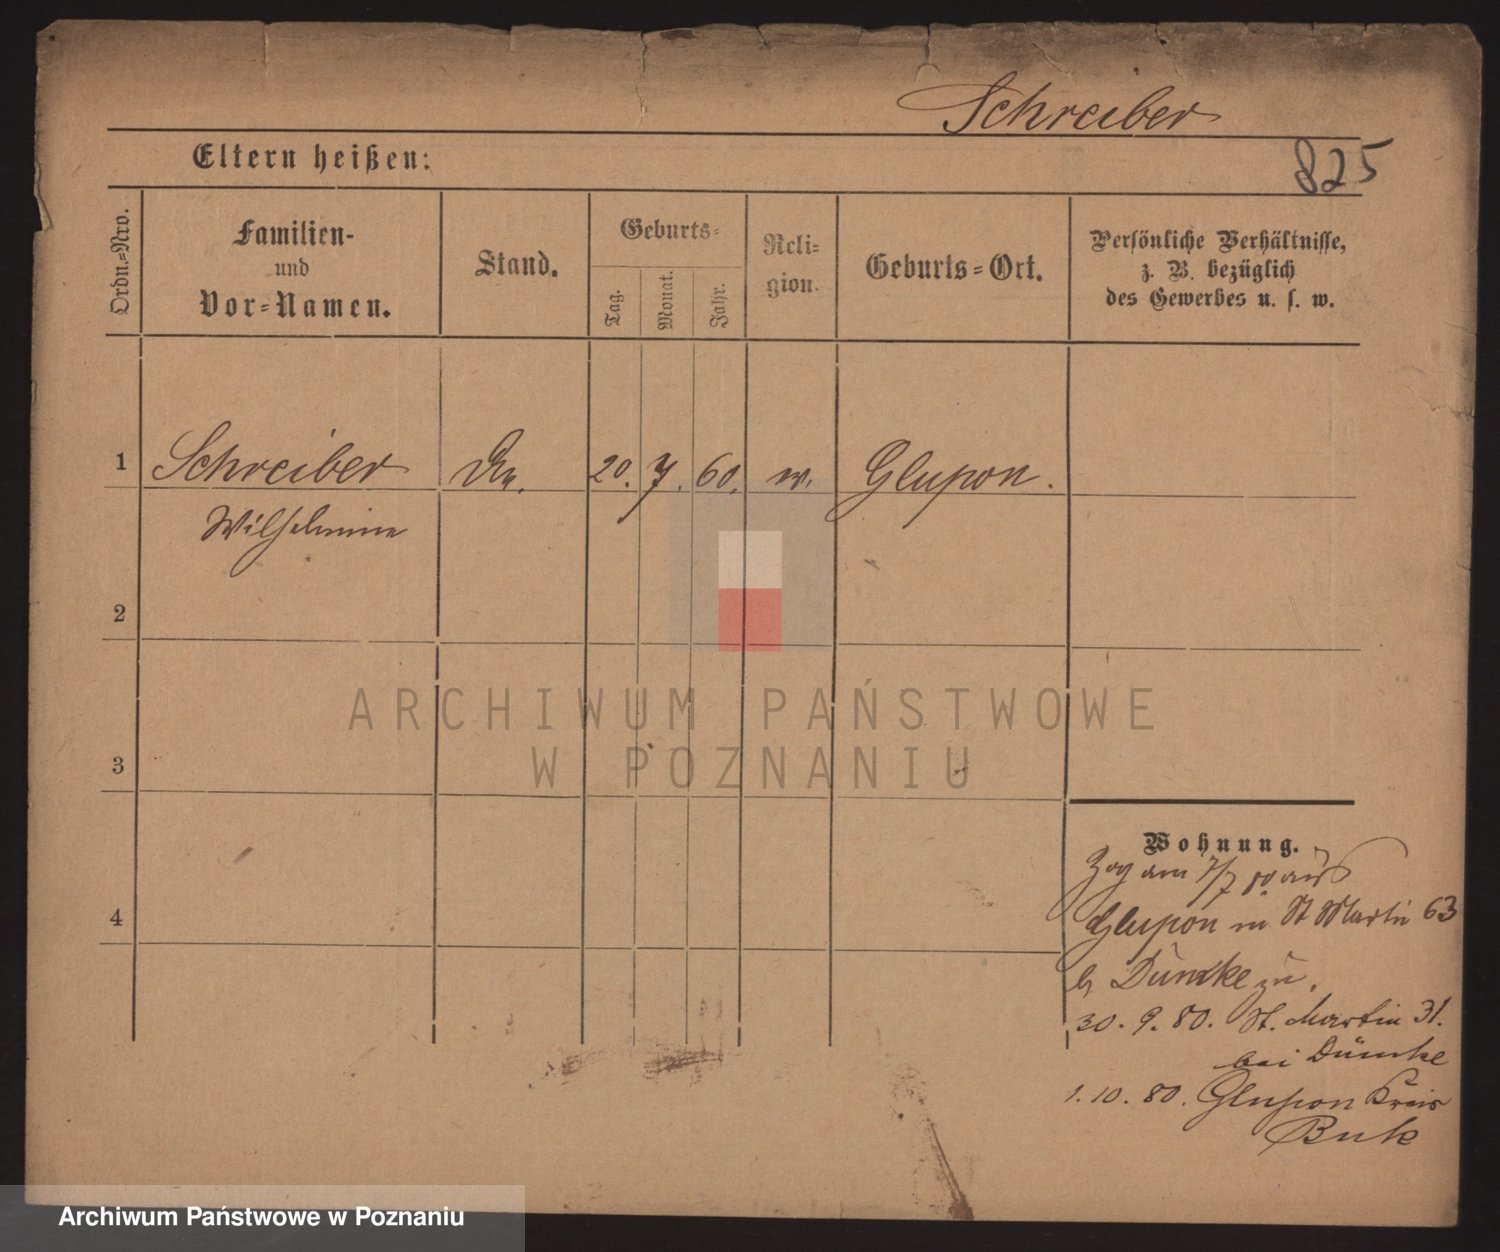 Schreiber
825
Eltern heißen:
Ordn.-Nro.
Familien-
und
Vor-Namen.
Stand.
Geburts-
Tag.
Monat.
Jahr.
Reli-
gion.
Geburts-Ort.
Persönliche Verhältnisse,
z. B. bezüglich
des Gewerbes u. s. w.
1 Schreiber 20. 7. 60. Glupon.
Wilhelmine
2
3
4
ARCHIWUM PAŃSTWOWE
W POZNANIU
Wohnung.
Zog am 7/7 80 aus
Glupon in St Martin 63
b Dümke zu.
30. 9. 80. St. Martin 31.
bei Dümke
1. 10. 80. Glupon Kreis
Buk
Archiwum Państwowe w Poznaniu